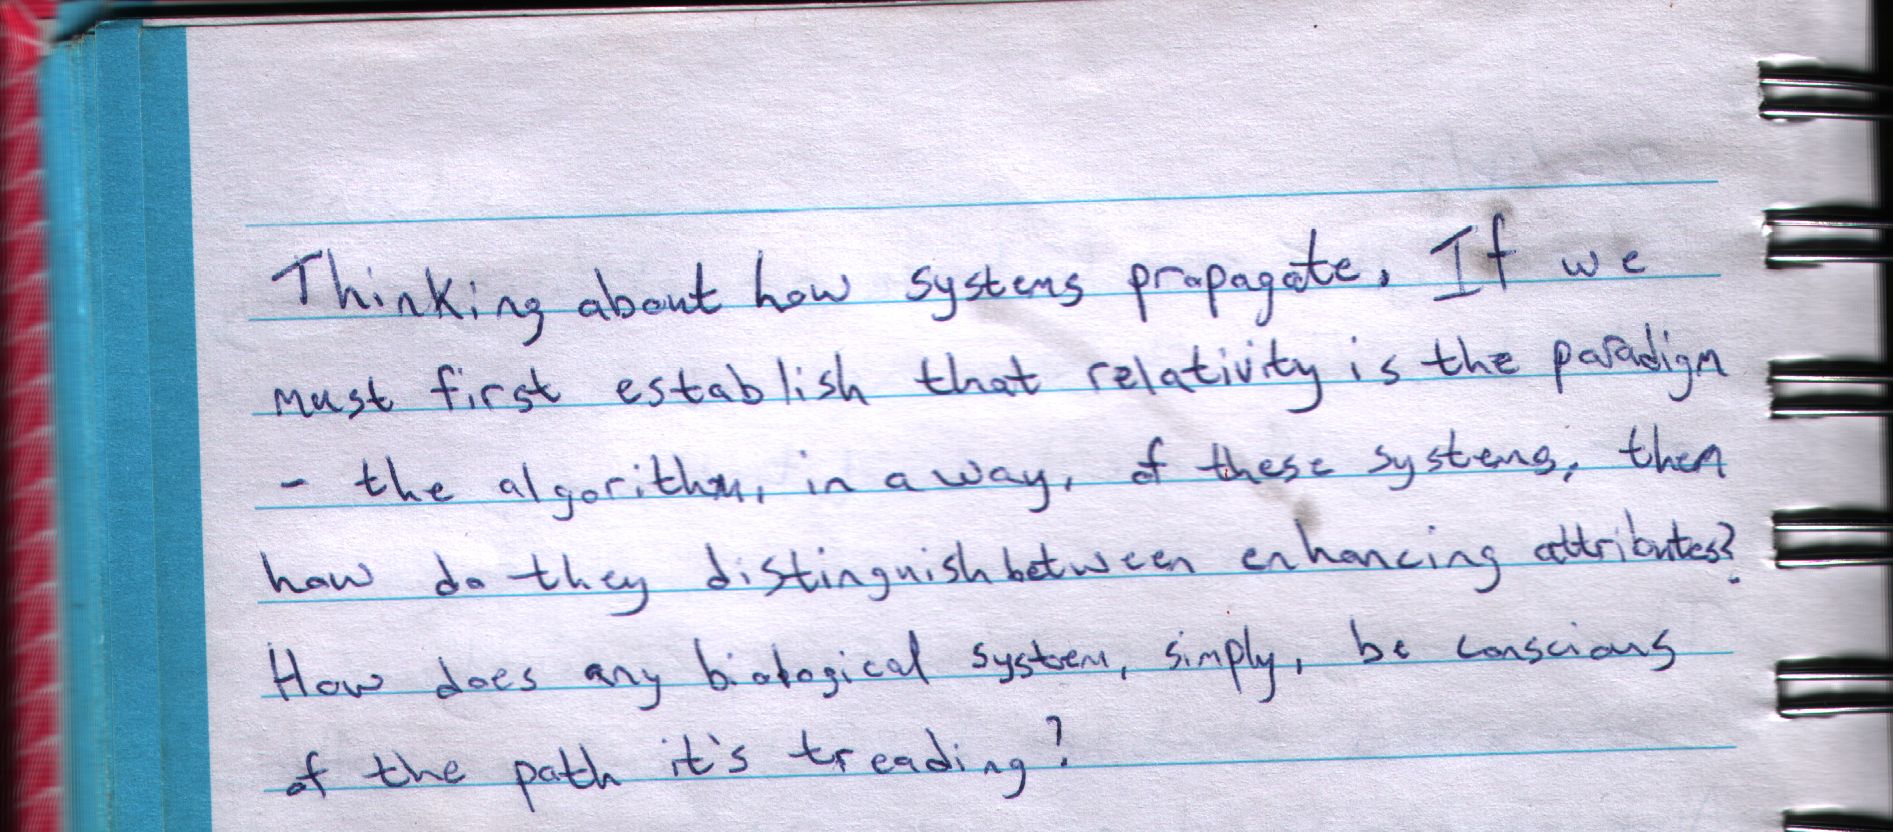 Thinking about how systems propagate. If we
must first establish that relativity is the paradigm
- the algorithm, in a way, of these systems, then
how do they distinguish between enhancing attributes?
How does any biological system, simply, be conscious
of the path it's treading?